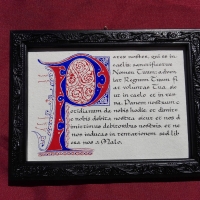 Pater noster, qui es in
caelis sanctificetur
Nomen Tuum; adveni
at Regnum Tuum, fi
at voluntas Tua, sic
ut in caelo et in ter
ra. Panem nostrum c
otidianum da nobis hodie et dimitte
nobis debita nostra sicut et nos d
imittimus debitoribus nostris et ne
nos inducas in tentationem sed lib
era nos a Malo.